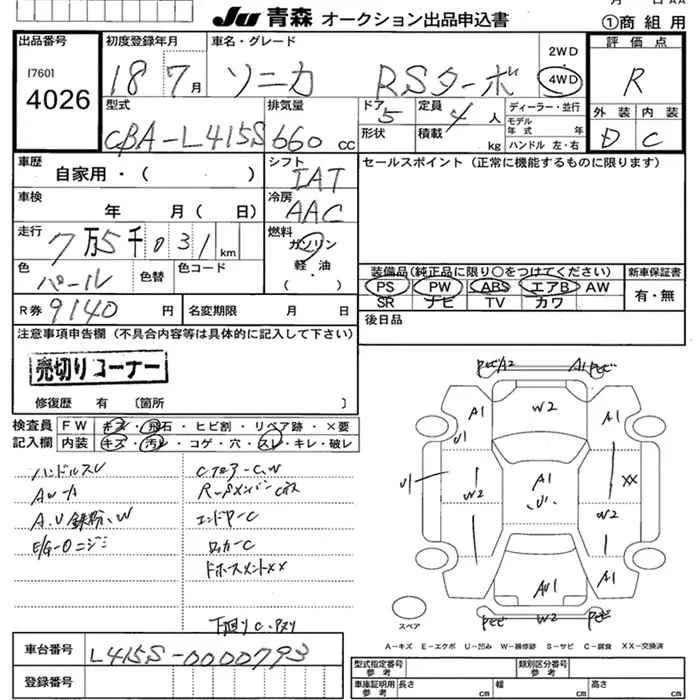 Ju 青森 オークション出品申込書
①商 組 用
出品番号
[760]
4026
初度登録年月
18 7月
車名・グレード
ソニカ RSターボ
2WD
4WD
評価点
R
外装 内装
D C
型式
CBA-L415S
排気量
660 cc
ドア
5
形状
定員
4 人
積載
kg
ディーラー・並行
モデル
年式 年
ハンドル 左・右
車歴
自家用・( )
シフト
IAT
セールスポイント (正常に機能するものに限ります)
車検
年 月( 日)
冷房
AAC
走行
7万5千031 km
燃料
ガソリン
軽・油
・( )
色
パール
色替
色コード
装備品(純正品に限り○をつけてください)
PS PW ABS エアB AW
SR ナビ TV カワ
新車保証書
有・無
R券 9140 円
名変期限 月 日
後日品
注意事項申告欄 (不具合内容等は具体的に記入して下さい)
売切りコーナー
修復歴 有 〔箇所 〕
検査員
記入欄
FW キズ・飛石・ヒビ割・リペア跡・×要
内装 キズ・汚レ・コゲ・穴・スレ・キレ・破レ
ハンドルスレ
エンドヤーC
ロッカーC
下回りC・
A2
A1
W2
A1
A1
U1
U1
W2
A1
U1
XX
W2
A1
AU1
W2
スペア
A-キズ E-エクボ U-凹み W-補修跡 S-サビ C-腐食 XX-交換済
車台番号
L415S-0000793
登録番号
型式指定番号
参考
類別区分番号
参考
車庫証明用
参考
長さ cm
幅 cm
高さ cm